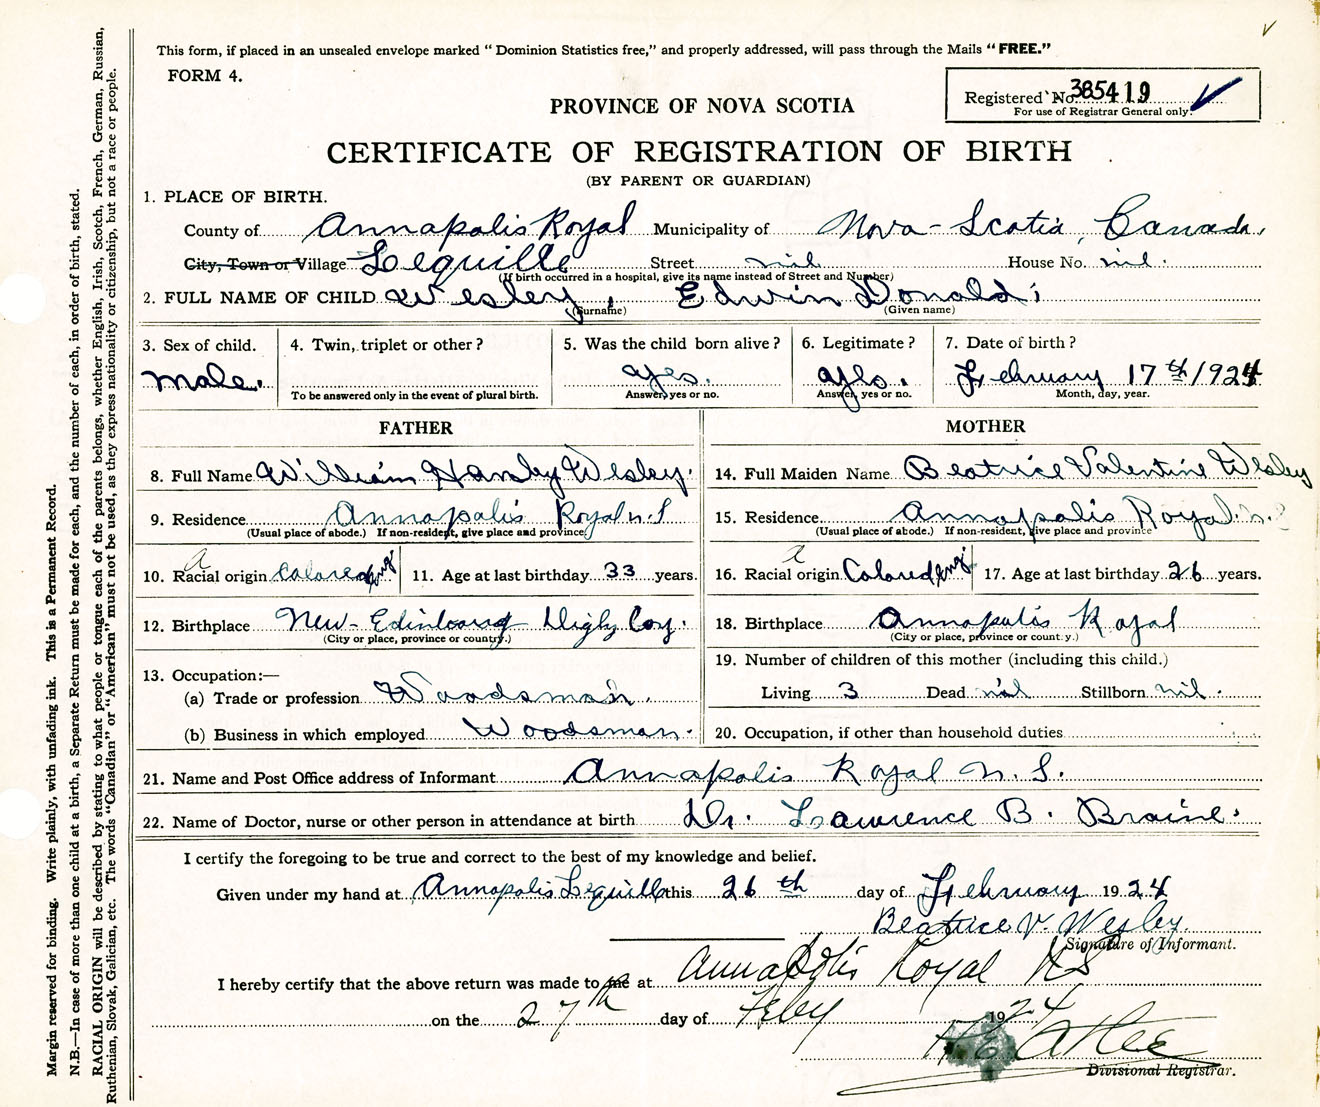 This form, if placed in an unsealed envelope marked " Dominion Statistics free," and properly addressed, will pass through the Mails "FREE."
FORM 4.
Registered No. 385419
For use of Registrar General only.
PROVINCE OF NOVA SCOTIA
CERTIFICATE OF REGISTRATION OF BIRTH
(BY PARENT OR GUARDIAN)
1. PLACE OF BIRTH.
County of Annapolis Royal Municipality of Nova-Scotia, Canada.
City, Town or Village Lequille Street nil House No. nil.
(If birth occurred in a hospital, give its name instead of Street and Number)
2. FULL NAME OF CHILD Wesley, Edwin Donald;
(Surname) (Given name)
3. Sex of child. 4. Twin, triplet or other? 5. Was the child born alive? 6. Legitimate? 7. Date of birth?
male. yes. yes. February 17th 1924
To be answered only in the event of plural birth. Answer, yes or no. Answer, yes or no. Month, day, year.
FATHER
8. Full Name William Wesley.
9. Residence Annapolis Royal n.S
(Usual place of abode.) If non-resident, give place and province)
10. Racial origin Colored 11. Age at last birthday 33 years.
12. Birthplace New-Edinbourg Digby Coy.
(City or place, province or country.)
13. Occupation:—
(a) Trade or profession Woodsman.
(b) Business in which employed Woodsman.
MOTHER
14. Full Maiden Name Beatrice Valentine Wesley
15. Residence Annapolis Royal. n.S
(Usual place of abode.) If non-resident, give place and province
16. Racial origin Colored 17. Age at last birthday 26 years.
18. Birthplace Annapolis Royal
(City or place, province or country.)
19. Number of children of this mother (including this child.)
Living 3 Dead nil Stillborn nil.
20. Occupation, if other than household duties
21. Name and Post Office address of Informant Annapolis Royal N. S.
22. Name of Doctor, nurse or other person in attendance at birth Dr. Lawrence B. Braine.
I certify the foregoing to be true and correct to the best of my knowledge and belief.
Given under my hand at Annapolis Lequille this 26th day of February 1924
Beatrice V. Wesley.
Signature of Informant.
I hereby certify that the above return was made to me at Annapolis Royal NS
on the 27th day of Feby 1924
Divisional Registrar.
Margin reserved for binding. Write plainly, with unfading ink. This is a Permanent Record.
N.B.—In case of more than one child at a birth, a Separate Return must be made for each, and the number of each, in order of birth, stated.
RACIAL ORIGIN will be described by stating to what people or tongue each of the parents belongs, whether English, Irish, Scotch, French, German, Russian,
Ruthenian, Slovak, Galician, etc. The words "Canadian" or "American" must not be used, as they express nationality or citizenship, but not a race or people.